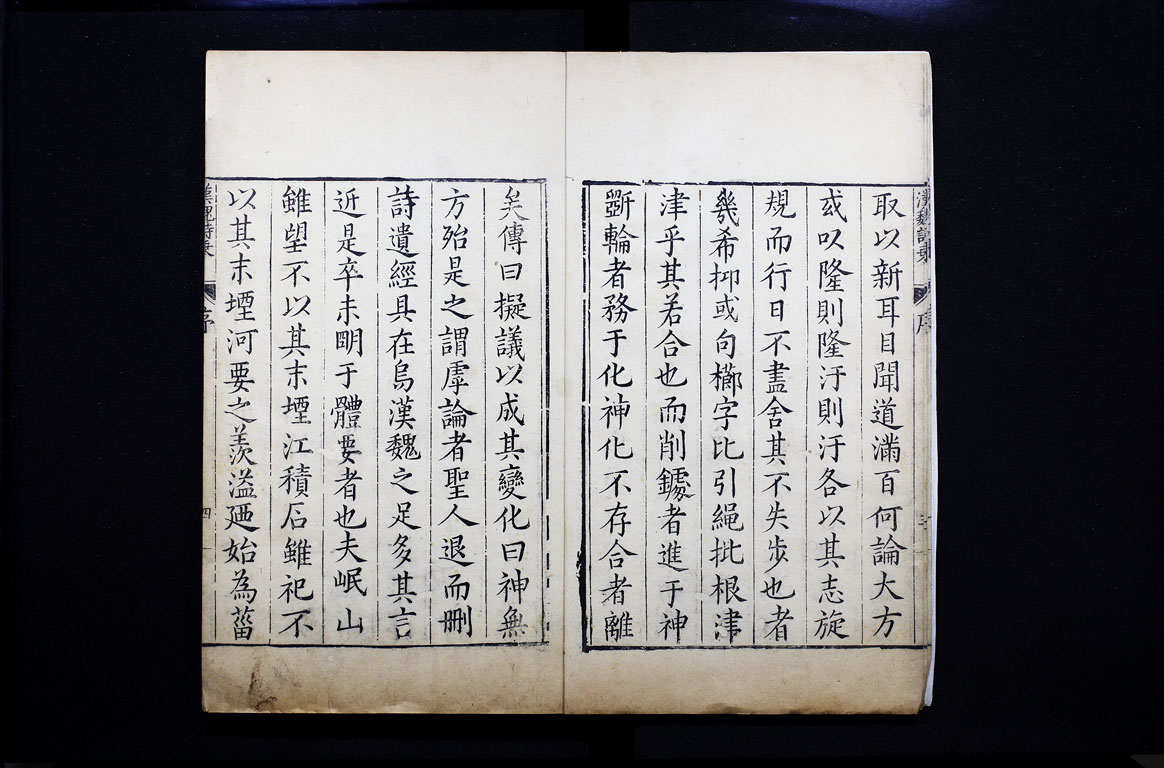 取以新耳目聞道滿百何論大方
或以隆則隆汙則汙各以其志旋
規而行日不盡舍其不失步也者
幾希抑或句櫛字比引繩批根津
津乎其若合也而削鐻者進于神
斵輪者務于化神化不存合者離
矣傳曰擬議以成其變化曰神無
方殆是之謂虖論者聖人退而刪
詩遺經具在烏漢魏之足多其言
近是卒未明于體要者也夫岷山
雖望不以其末堙江積石雖祀不
以其末堙河要之羨溢廼始為菑
漢魏詩乘
序
四
漢魏詩乘
序
三